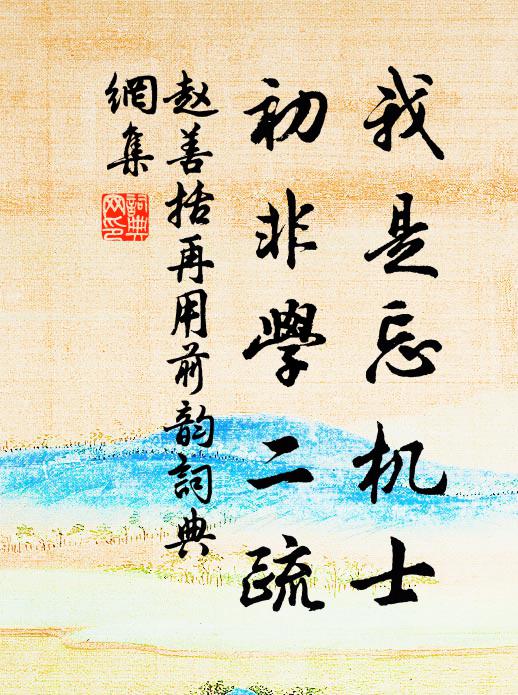 我是忘机士
初非學二疏
赵善括再用前韵詞典
網集
詞典
网印